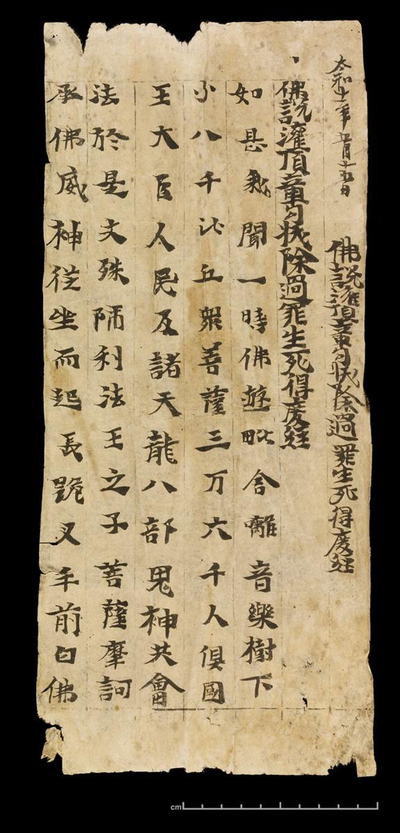 太和十一年五月十五日
佛說灌頂章句拔除過罪生死得度經
佛說灌頂章句拔除過罪生死得度經
如是我聞一時佛遊毗舍離音樂樹下
八千比丘眾菩薩三万六千人俱國
王大臣人民及諸天龍八部鬼神共會
法於是文殊師利法王之子菩薩摩訶
承佛威神從坐而起長跪叉手前白佛
cm